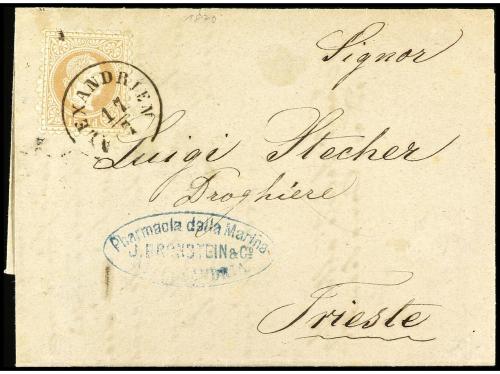 1870
Signor
ALEXANDRIEN
17/7
Luigi Stecher
Droghiere
Pharmacia dalla Marina
J. BRONSTEIN & Co
Trieste